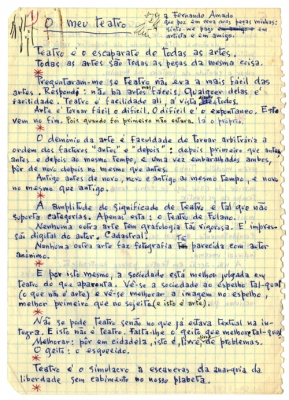 O meu teatro
a Fernando Amado
que pôs em cena peças minhas:
artista e em amigo.
Teatro é o escaparate de todas as artes.
Todas as artes são todas as peças da mesma coisa.
Preguntaram-me se Teatro não era a mais fácil das
artes. Respondi: não há artes fáceis. Qualquer delas é
facilidade. Teatro é facilidade ali, à vista de todos.
Arte é tornar fácil o difícil. O difícil é o expontaneo. Este
vem no fim. Pois quando foi primeiro não estava lá o próprio.
O demónio da arte é faculdade de tornar arbitrária a
ordem dos factores "antes" e "depois": depois primeiro que antes,
antes e depois ao mesmo tempo, e uma vez embaralhados ambos,
pôr de novo depois no mesmo que antes.
Antigo antes de novo, novo e antigo ao mesmo tempo, e novo
no mesmo que antigo.
A amplitude do significado de Teatro é tal que não
suporta categorias. Apenas esta: o teatro de Fulano.
Nenhuma outra arte tem grafologia tão rigorosa. É impres-
são digital do autor. Cadastral.
Nenhuma outra arte faz fotografia tão parecida com autor
anónimo.
E por isto mesmo, a sociedade está melhor julgada em
Teatro do que aparenta. Vê-se a sociedade ao espelho tal-qual
(o que não é arte) e vê-se melhorar a imagem no espelho,
melhor primeiro que no sujeito (e isto é arte).
Não se pode Teatro senão no que já estava textual na ín-
tegra. E isto não é teatro. Falta-lhe o geito que melhore tal-qual
Melhorar: pôr em cidadela, isto é, livre de problemas.
O geito: o esquecido.
Teatro é o simulacro a escancaras da anarquia da
liberdade sem cabimento no nosso planeta.